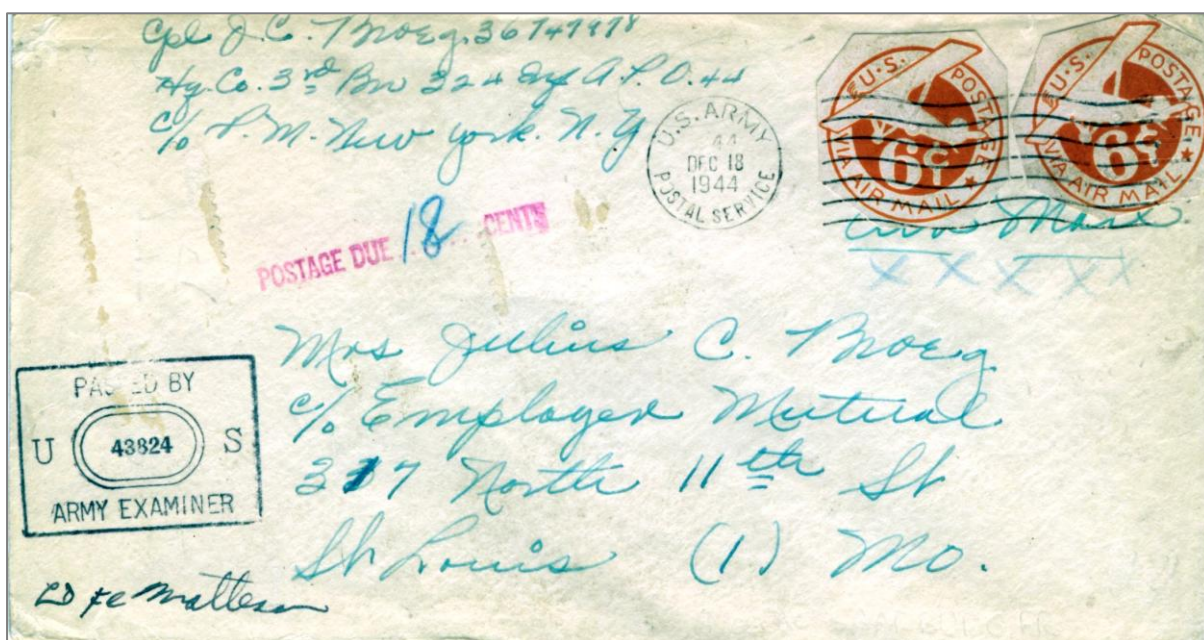 Cpl J.C. Broeg. 36747978
Hq. Co. 3rd Bn 324 Inf A.P.O. 44
c/o P.M. New York. N.Y
U.S. ARMY
44
DEC 18
1944
POSTAL SERVICE
U.S. POSTAGE
6¢
VIA AIR MAIL
U.S. POSTAGE
6¢
VIA AIR MAIL
POSTAGE DUE 18 CENTS
X X X X X
Mrs Julius C. Broeg
c/o Employer Mutual
317 North 11th St
St Louis (1) Mo.
PASSED BY
U 43824 S
ARMY EXAMINER
Matteson